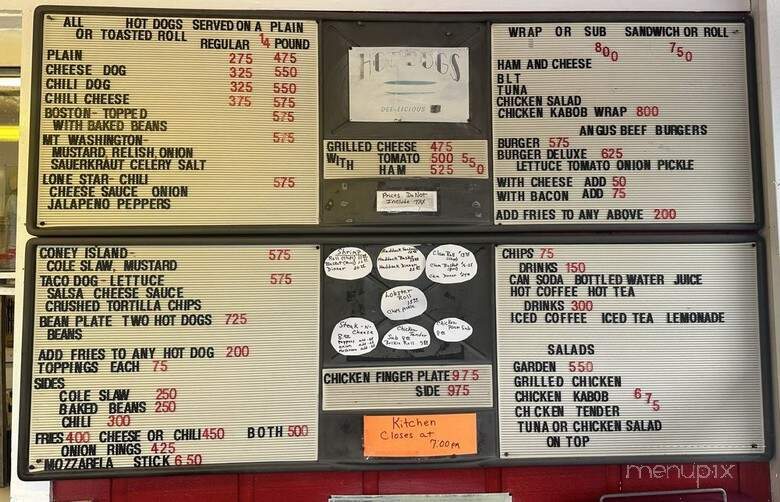 ALL HOT DOGS SERVED ON A PLAIN
OR TOASTED ROLL
REGULAR 1/4 POUND
PLAIN 275 475
CHEESE DOG 325 550
CHILI DOG 325 550
CHILI CHEESE 375 575
BOSTON- TOPPED 575
WITH BAKED BEANS
MT WASHINGTON- 575
MUSTARD, RELISH, ONION
SAUERKRAUT CELERY SALT
LONE STAR- CHILI 575
CHEESE SAUCE ONION
JALAPENO PEPPERS
HOT DOGS
DEE-LICIOUS
GRILLED CHEESE 475
WITH TOMATO 500 550
HAM 525
Prices Do Not
Include TAX
WRAP OR SUB SANDWICH OR ROLL
800 750
HAM AND CHEESE
BLT
TUNA
CHICKEN SALAD
CHICKEN KABOB WRAP 800
ANGUS BEEF BURGERS
BURGER 575
BURGER DELUXE 625
LETTUCE TOMATO ONION PICKLE
WITH CHEESE ADD 50
WITH BACON ADD 75
ADD FRIES TO ANY ABOVE 200
CONEY ISLAND- 575
COLE SLAW, MUSTARD
TACO DOG- LETTUCE 575
SALSA CHEESE SAUCE
CRUSHED TORTILLA CHIPS
BEAN PLATE TWO HOT DOGS 725
BEANS
ADD FRIES TO ANY HOT DOG 200
TOPPINGS EACH 75
SIDES
COLE SLAW 250
BAKED BEANS 250
CHILI 300
FRIES 400 CHEESE OR CHILI 450 BOTH 500
ONION RINGS 425
MOZZARELA STICK 6 50
Shrimp
Roll
Dinner
Haddock
Haddock Basket
Haddock Dinner
Clam Roll
Clam Basket
Clam Dinner
Lobster
Roll
Chips pickle
Steak-N-
Cheese
Chicken Tender
Sub
Chicken
Sub
CHICKEN FINGER PLATE 975
SIDE 975
Kitchen
Closes at
7:00 pm
CHIPS 75
DRINKS 150
CAN SODA BOTTLED WATER JUICE
HOT COFFEE HOT TEA
DRINKS 300
ICED COFFEE ICED TEA LEMONADE
SALADS
GARDEN 550
GRILLED CHICKEN
CHICKEN KABOB 675
CHICKEN TENDER
TUNA OR CHICKEN SALAD
ON TOP
menupix